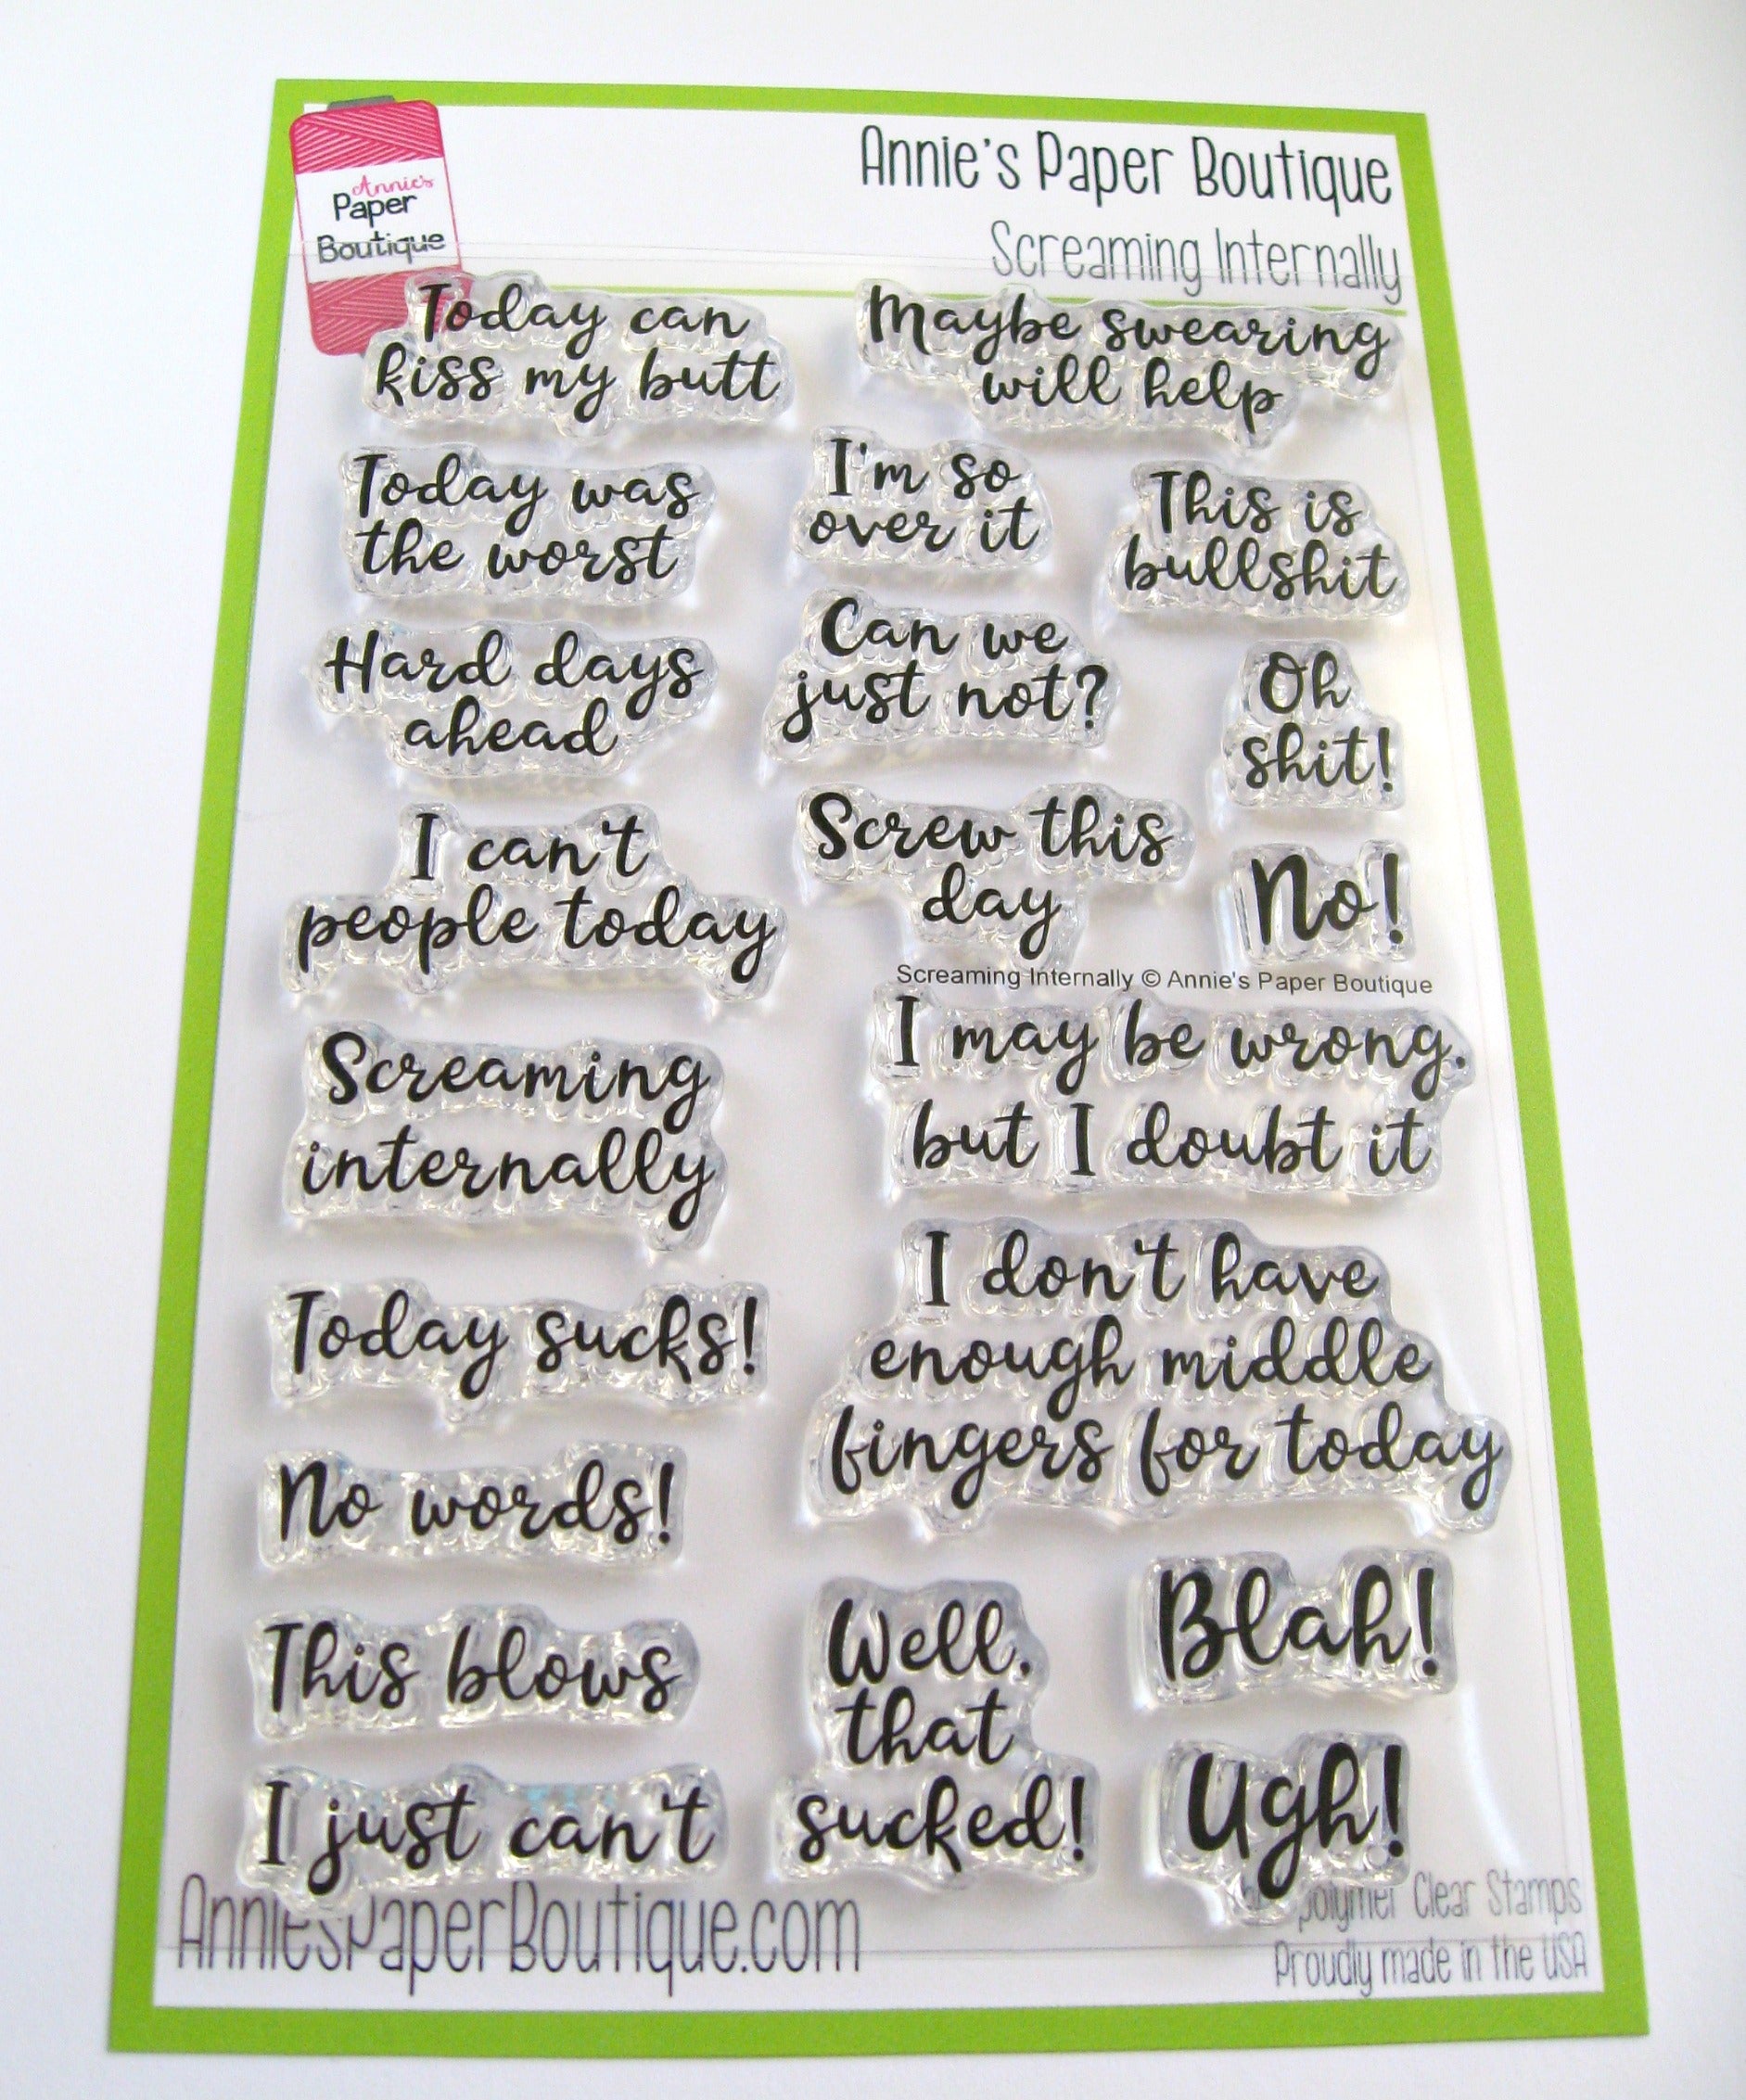 Annie's
Paper
Boutique
Annie's Paper Boutique
Screaming Internally
Today can
kiss my butt
Maybe swearing
will help
Today was
the worst
I'm so
over it
This is
bullshit
Hard days
ahead
Can we
just not?
Oh
shit!
I can't
people today
Screw this
day
No!
Screaming Internally © Annie's Paper Boutique
Screaming
internally
I may be wrong,
but I doubt it
Today sucks!
I don't have
enough middle
fingers for today
No words!
This blows
Well,
that
sucked!
Blah!
I just can't
Ugh!
AnniesPaperBoutique.com
Clear Stamps
Proudly made in the USA